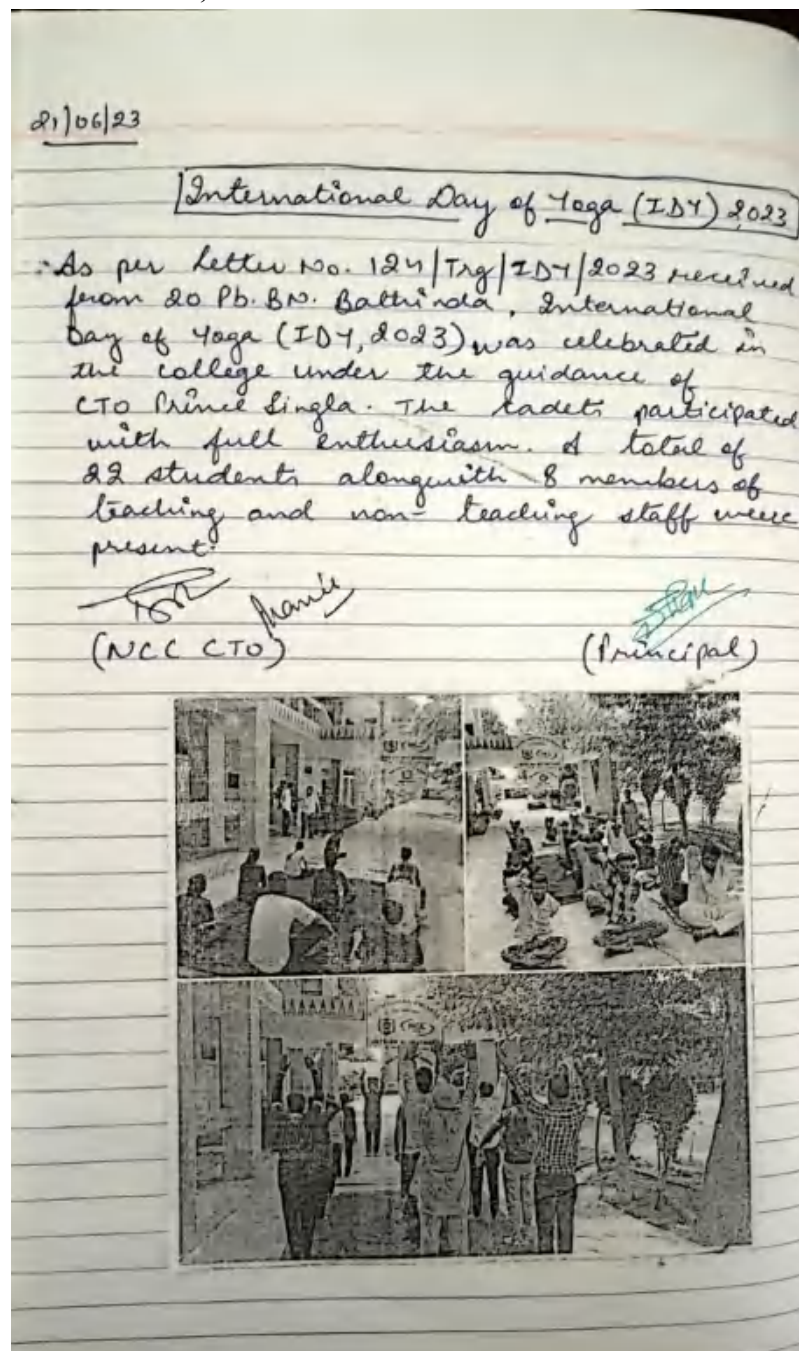 21/06/23
International Day of Yoga (IDY) 2023
As per Letter No. 124/Trg/IDY/2023 received
from 20 Pb. BN. Bathinda, International
Day of Yoga (IDY, 2023) was celebrated in
the college under the guidance of
CTO Prince Singla. The cadets participated
with full enthusiasm. A total of
22 students alongwith 8 members of
teaching and non-teaching staff were
present.
(NCC CTO) (Principal)